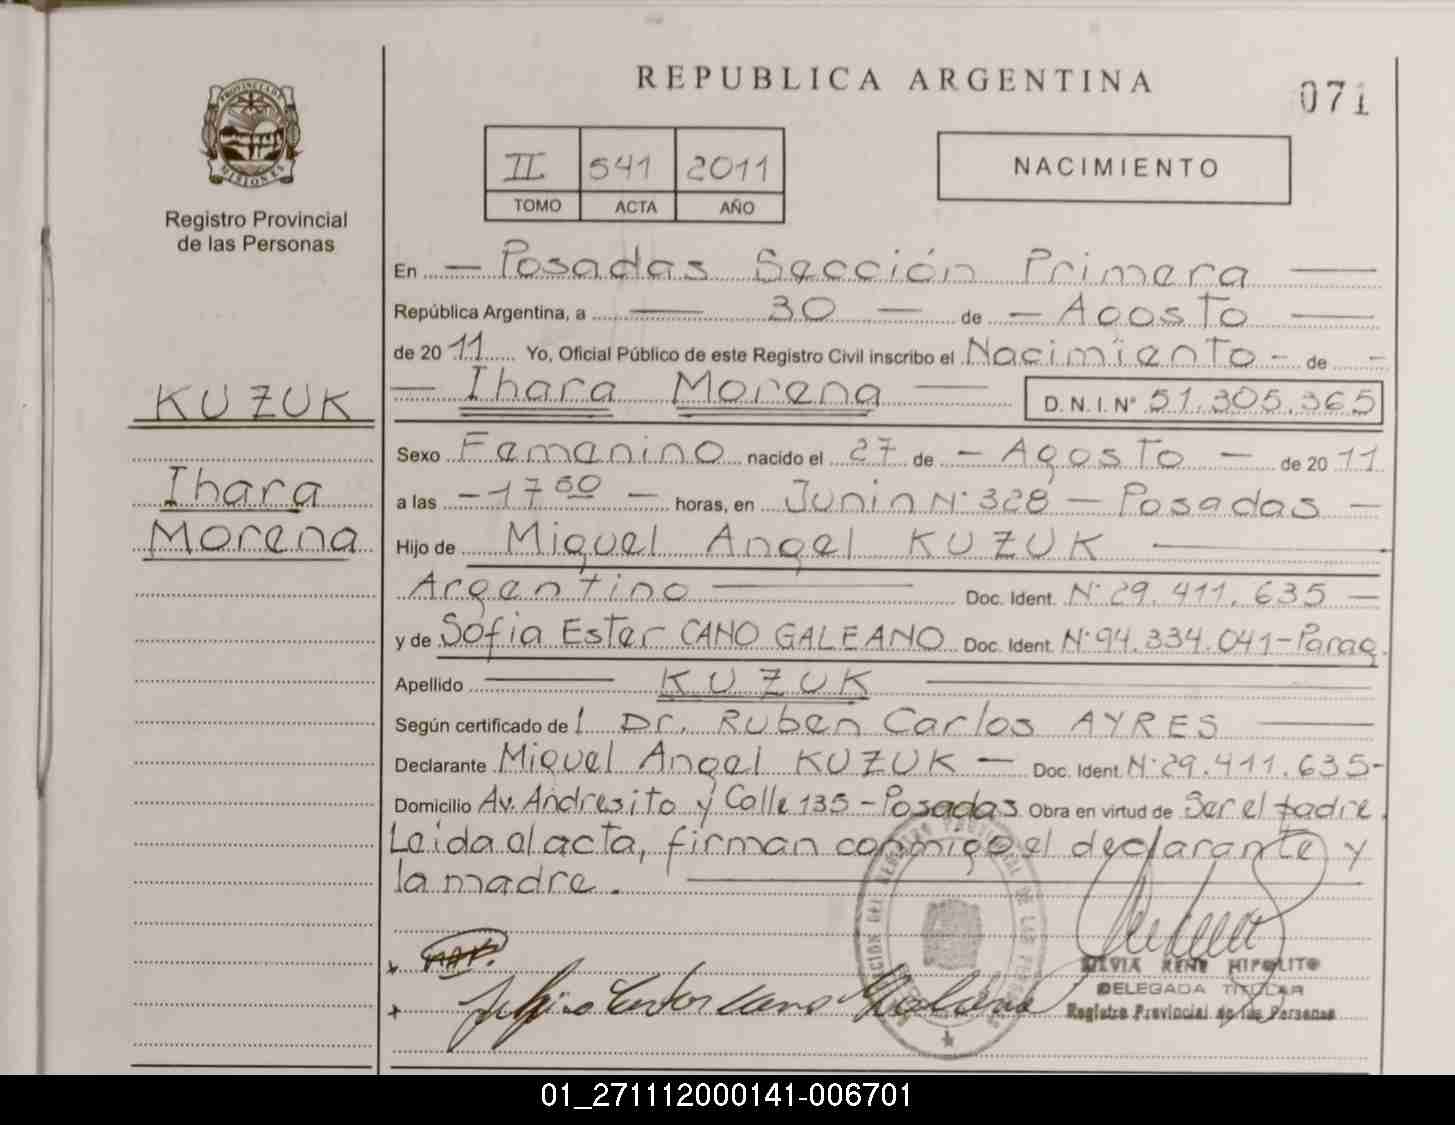 REPUBLICA ARGENTINA
071
II 541 2011
TOMO ACTA AÑO
NACIMIENTO
PROVINCIA DE MISIONES
Registro Provincial
de las Personas
KUZUK
Ihara
Morena
En — Posadas Sección Primera —
República Argentina, a — 30 — de — Agosto —
de 2011 Yo, Oficial Público de este Registro Civil inscribo el Nacimiento - de -
— Ihara Morena — D.N.I.Nº 51.305.365
Sexo Femenino nacido el 27 de — Agosto — de 2011
a las — 17 50 — horas, en Junin Nº 328 — Posadas —
Hijo de Miguel Angel KUZUK —
Argentino — Doc. Ident. Nº 29.411.635 —
y de Sofia Ester CANO GALEANO Doc. Ident. Nº 94.334.041-Parag.
Apellido — KUZUK —
Según certificado de l Dr. Ruben Carlos AYRES —
Declarante Miguel Angel KUZUK — Doc. Ident. Nº 29.411.635-
Domicilio Av. Andresito y Calle 135 - Posadas Obra en virtud de Ser el padre.
Leida el acta, firman conmigo el declarante y
la madre. —
SILVIA RENE HIPOLITO
DELEGADA TITULAR
Registro Provincial de las Personas
01_271112000141-006701